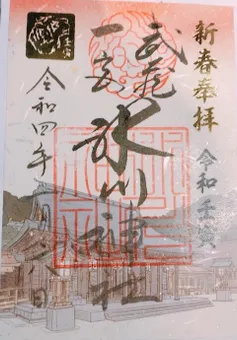 新春奉拝
令和壬寅
武蔵
一宮
氷川神社
令和四年
月八日